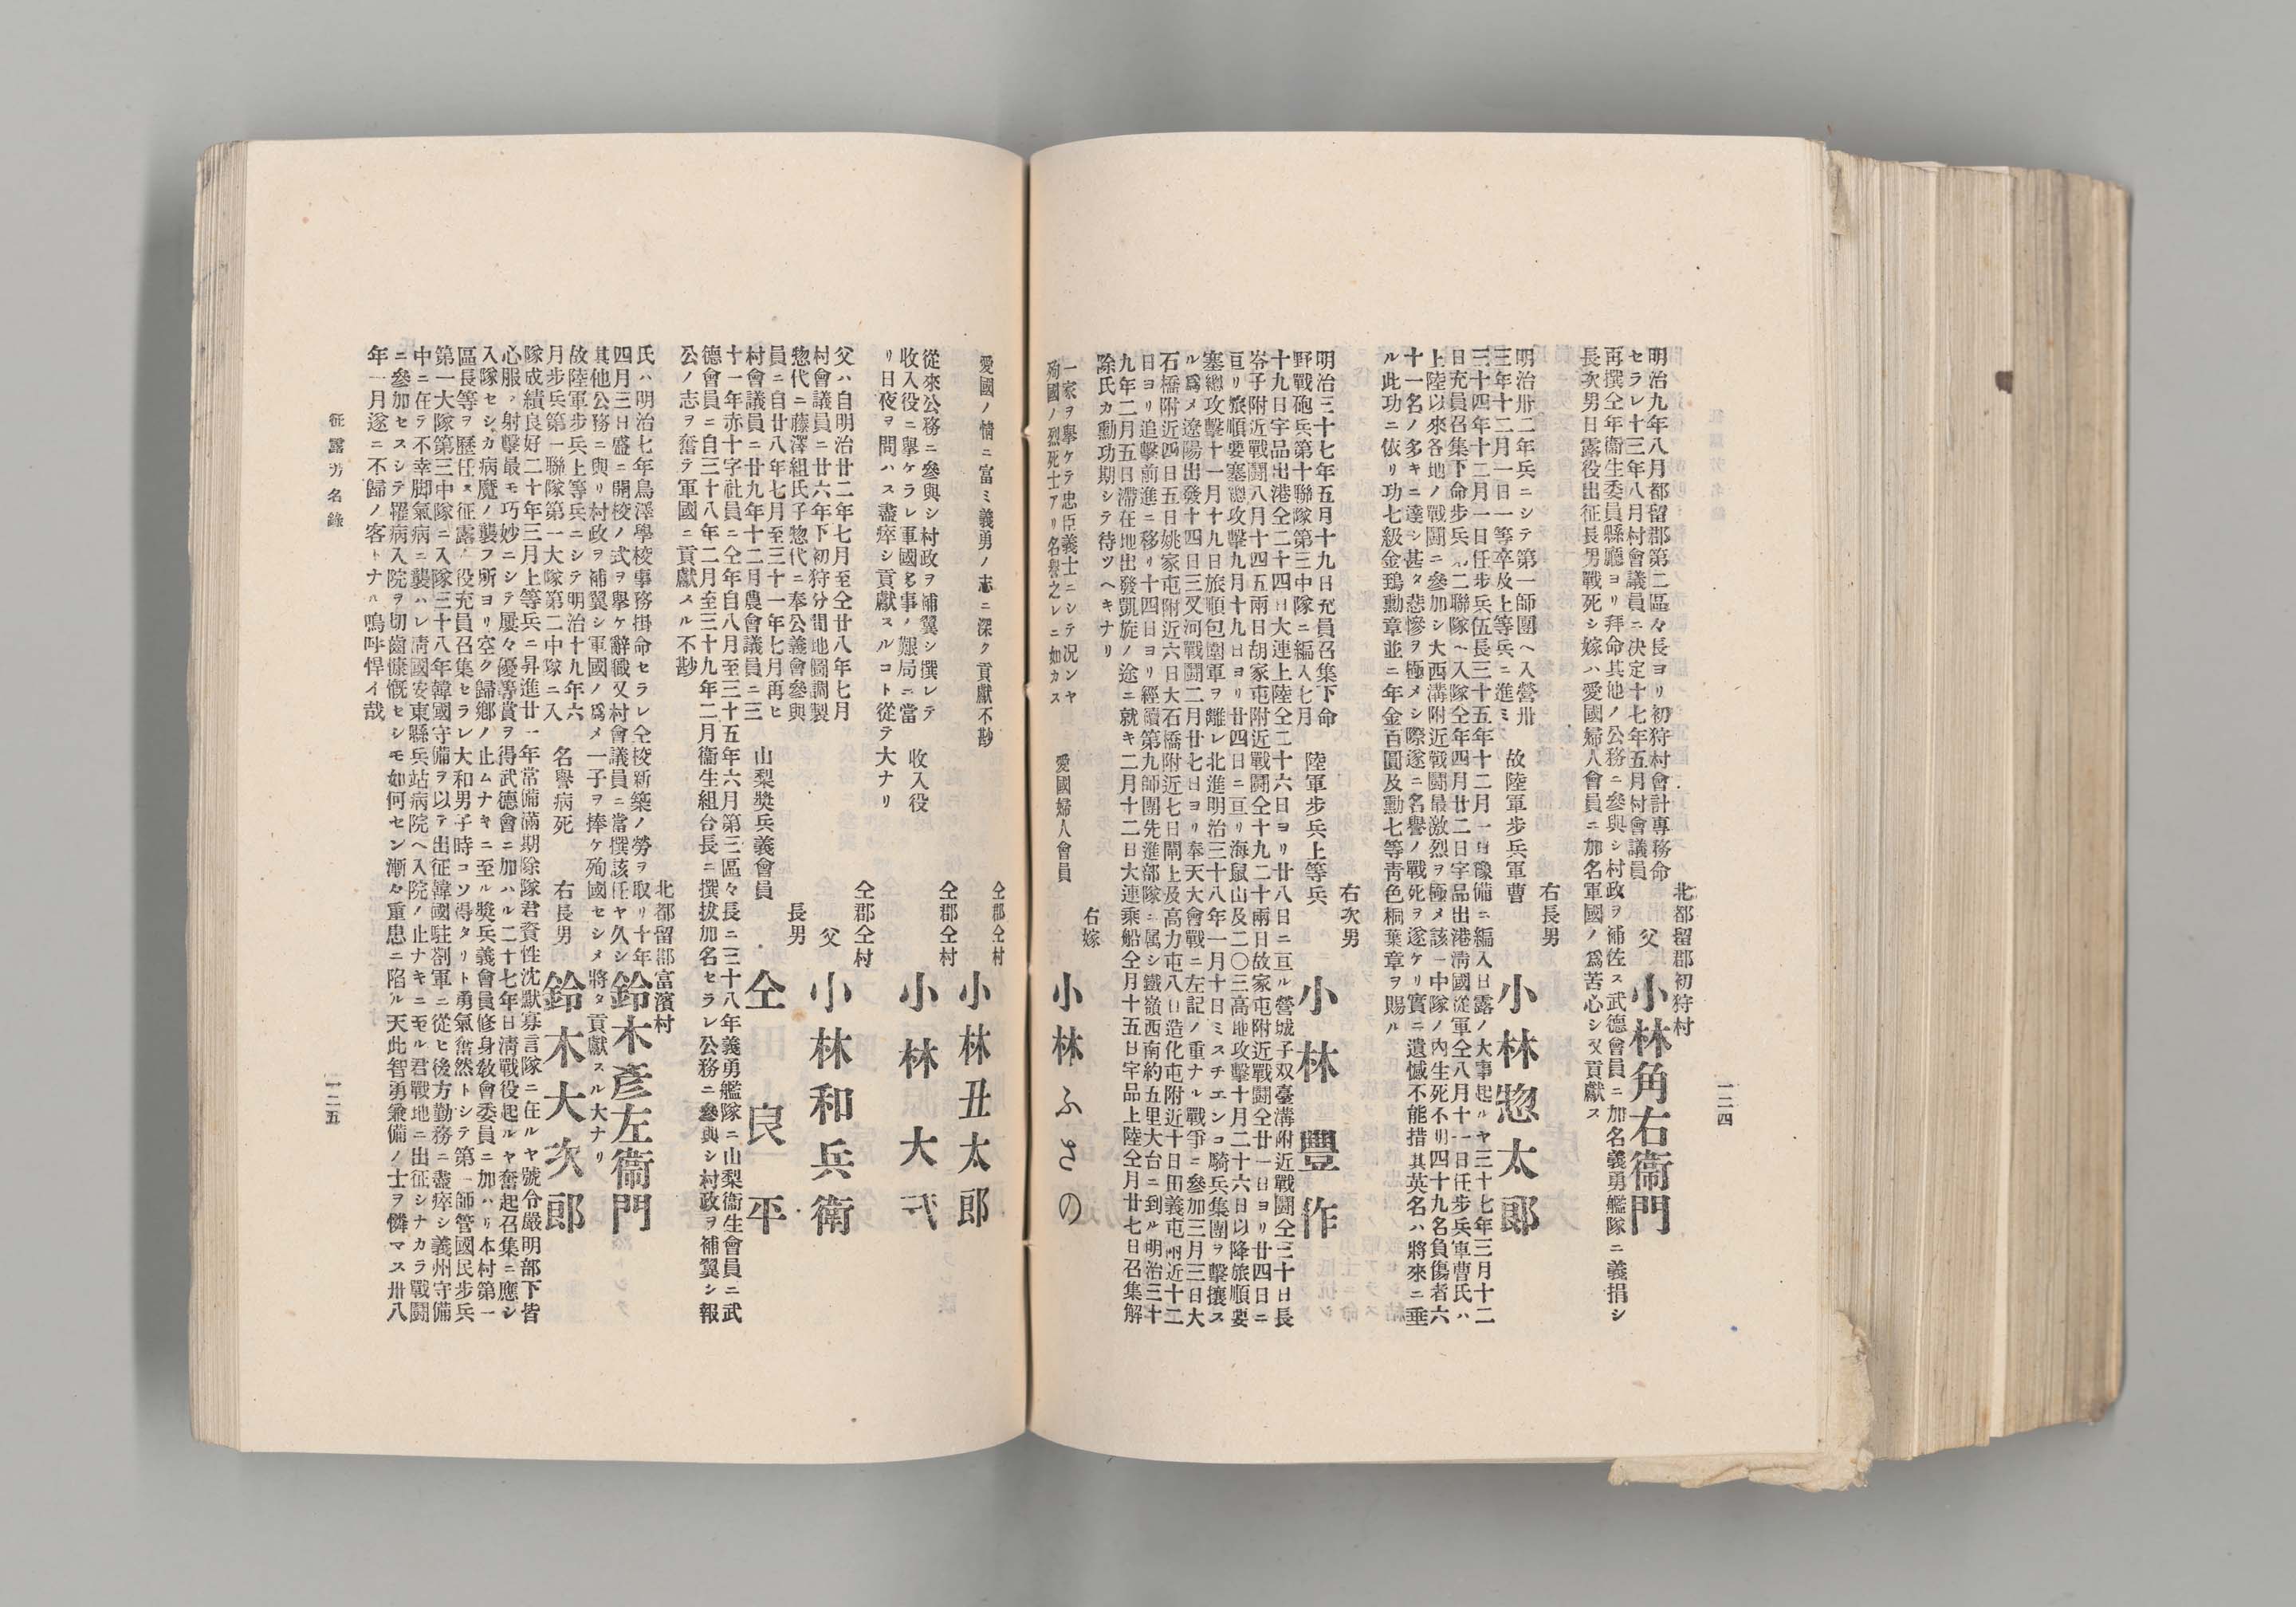 一二四
北都留郡初狩村
父 小林角右衞門
明治九年八月都留郡第二區々長ヨリ初狩村會計專務命
セラレ十三年八月村會議員ニ決定十七年五月村會議員
再撰仝年衞生委員縣廳ヨリ拜命其他ノ公務ニ參與シ村政ヲ補佐ス武德會員ニ加名義勇艦隊ニ義捐シ
長次男日露役出征長男戰死シ嫁ハ愛國婦人會員ニ加名軍國ノ爲苦心シ又貢獻ス
右長男
故陸軍步兵軍曹 小林惣太郎
明治卅二年兵ニシテ第一師團ヘ入營卅
三年十二月一日一等卒及上等兵ニ進ミ
三十四年十二月一日任步兵伍長三十五年十二月一日豫備ニ編入日露ノ大事起ルヤ三十七年三月十二
日充員召集下命步兵第二聯隊ヘ入隊仝年四月廿二日宇品出港淸國從軍仝八月十一日任步兵軍曹氏ハ
上陸以來各地ノ戰鬪ニ參加シ大西溝附近戰鬪最激烈ヲ極メ該一中隊ノ內生死不明四十九名負傷者六
十一名ノ多キニ達シ甚タ悲慘ヲ極メシ際遂ニ名譽ノ戰死ヲ遂ケリ實ニ遺憾不能措其英名ハ將來ニ垂
ル此功ニ依リ功七級金鵄勳章並ニ年金百圓及勳七等靑色桐葉章ヲ賜ル
右次男
陸軍步兵上等兵 小林豐作
明治三十七年五月十九日充員召集下命
野戰砲兵第十聯隊第三中隊ニ編入七月
十九日宇品出港仝二十四日大連上陸仝二十六日ヨリ廿八日ニ亘ル營城子双臺溝附近戰鬪仝三十日長
岺子附近戰鬪八月十四五兩日胡家屯附近戰鬪仝十九二十兩日故家屯附近戰鬪仝廿一日ヨリ廿四日ニ
亘リ旅順要塞總攻擊九月十九日ヨリ廿四日ニ亘リ海鼠山及二〇三高地攻擊十月二十六日以降旅順要
塞總攻擊十一月十九日旅順包圍軍ヲ離レ北進明治三十八年一月十日ミスチエンコ騎兵集團ヲ擊攘ス
ル爲メ遼陽出發十四日三叉河戰鬪二月廿七日ヨリ奉天大會戰ニ左記ノ重ナル戰爭ニ參加三月三日大
石橋附近四日五日姚家屯附近六日大石橋附近七日閘上及高力屯八日造化屯附近十日田義屯附近十二
日ヨリ追擊前進ニ移リ十四日ヨリ經續第九師團先進部隊ニ属シ鐵嶺西南約五里大台ニ到ル明治三十
九年二月五日滯在地出發凱旋ノ途ニ就キ二月十二日大連乘船仝月十五日宇品上陸仝月廿七日召集解
除氏カ勳功期シテ待ツヘキナリ
右嫁
愛國婦人會員 小林ふさの
一家ヲ擧ケテ忠臣義士ニシテ況ンヤ
殉國ノ烈死士アリ名譽之レニ如カス
仝郡仝村
小林丑太郎
愛國ノ情ニ富ミ義勇ノ志ニ深ク貢獻不尠
仝郡仝村
收入役 小林大弐
從來公務ニ參與シ村政ヲ補翼シ撰レテ
收入役ニ擧ケラレ軍國多事ノ艱局ニ當
リ日夜ヲ問ハス盡瘁シ貢獻スルコト從テ大ナリ
仝郡仝村
父 小林和兵衛
父ハ自明治廿二年七月至仝廿八年七月
村會議員ニ廿六年下初狩分間地圖調製
惣代ニ藤澤組氏子惣代ニ奉公義會參與
長男
山梨奬兵義會員 仝 良平
員ニ自廿八年七月至三十一年七月再ヒ
村會議員ニ廿九年十二月農會議員ニ三
十一年赤十字社員ニ仝年自八月至三十五年六月第三區々長ニ三十八年義勇艦隊ニ山梨衞生會員ニ武
德會員ニ自三十八年二月至三十九年二月衞生組合長ニ撰拔加名セラレ公務ニ參與シ村政ヲ補翼シ報
公ノ志ヲ奮テ軍國ニ貢獻スル不尠
北都留郡富濱村
鈴木彥左衞門
氏ハ明治七年鳥澤學校事務掛命セラレ仝校新築ノ勞ヲ取リ十年
四月三日盛ニ開校ノ式ヲ擧ケ辭職又村會議員ニ當撰該任ヤ久シ
其他公務ニ與リ村政ヲ補翼シ軍國ノ爲メ一子ヲ捧ケ殉國セシメ將タ貢獻スル大ナリ
右長男
名譽病死 鈴木大次郎
故陸軍步兵上等兵ニシテ明治十九年六
月步兵第一聯隊第一大隊第二中隊ニ入
隊成績良好二十年三月上等兵ニ昇進廿一年常備滿期除隊君資性沈默寡言隊ニ在ルヤ號令嚴明部下皆
心服ク射擊最モ巧妙ニシテ屢々優等賞ヲ得武德會ニ加ハル二十七年日淸戰役起ルヤ奮起召集ニ應シ
入隊セシカ病魔ノ襲フ所ヨリ空ク歸鄕ノ止ムナキニ至ル奬兵義會員修身敎會委員ニ加ハリ本村第一
區長等ヲ歷任ス征露ノ役充員召集セラレ大和男子時コソ得タリト勇氣奮然トシテ第一師管國民步兵
第一大隊第三中隊ニ入隊三十八年韓國守備ヲ以テ出征韓國駐劄軍ニ從ヒ後方勤務ニ盡瘁シ義州守備
中ニ在ラ不幸脚氣病ニ襲ハレ淸國安東縣兵站病院ヘ入院ノ止ナキニ至ル君戰地ニ出征シナカラ戰鬪
ニ參加セスシテ罹病入院ヲ切齒慷慨セシモ如何セン漸々重患ニ陷ル天此智勇兼備ノ士ヲ憐マス卅八
年一月遂ニ不歸ノ客トナル嗚呼悍イ哉
征露芳名錄
一二五